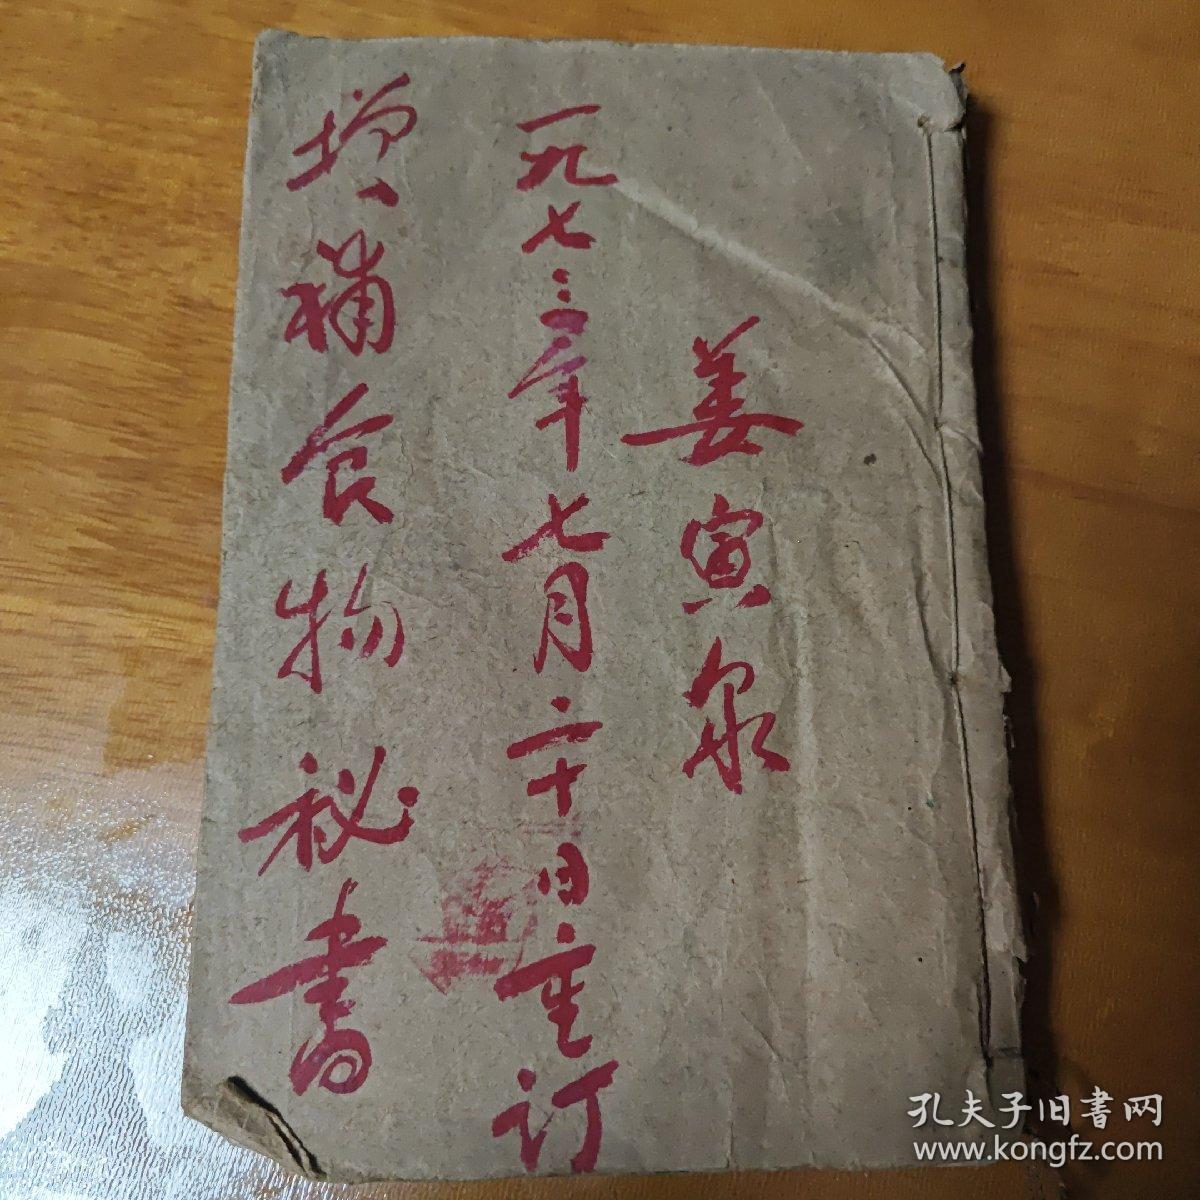 姜寅泉
一九七三年七月二十日重订
增補食物秘書
孔夫子旧書网
www.kongfz.com